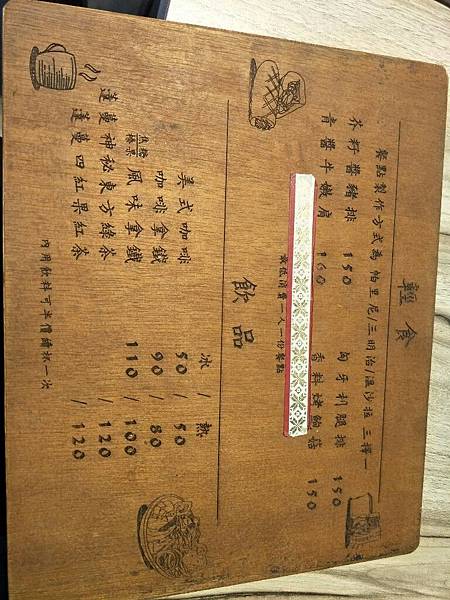 輕食
餐點製作方式為 帕里尼/三明治/溫沙拉 三擇一
芥籽醬豬排 150 匈牙利腿排 150
青醬牛嫩肩 160 香料烤鮑菇 150
最低消費一人一份餐點
飲品
冰 / 熱
美式咖啡 50 / 50
咖啡拿鐵 90 / 80
焦糖 榛果 風味拿鐵 110 / 100
蓬蔓神秘東方綠茶 / 120
蓬蔓四紅果紅茶 / 120
內用飲料可半價續杯一次